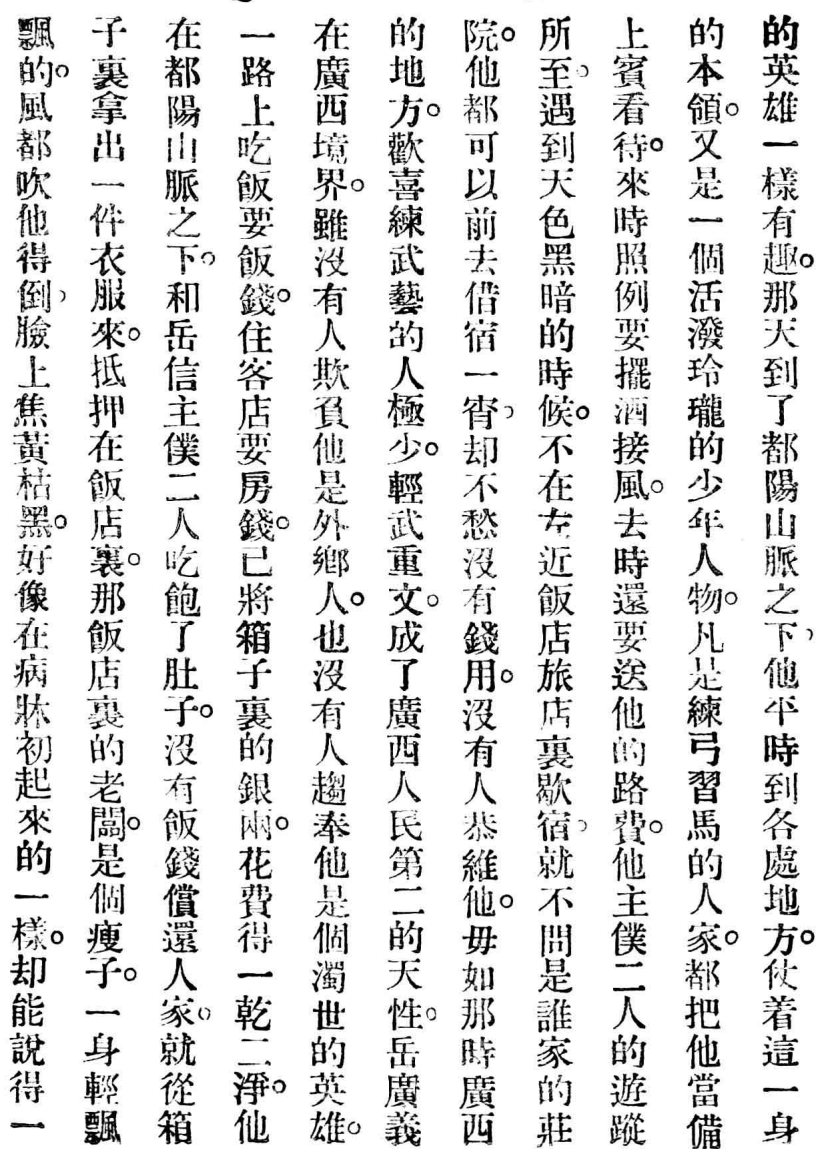 的英雄一樣有趣。那天到了都陽山脈之下、他平時到各處地方。仗着這一身
的本領。又是一個活潑玲瓏的少年人物。凡是練弓習馬的人家。都把他當備
上賓看待。來時照例要擺酒接風。去時還要送他的路費。他主僕二人的遊蹤
所至。遇到天色黑暗的時候。不在左近飯店旅店裏歇宿、就不問是誰家的莊
院。他都可以前去借宿一宵、却不愁沒有錢用。沒有人恭維他。毋如那時廣西
的地方。歡喜練武藝的人極少。輕武重文。成了廣西人民第二的天性。岳廣義
在廣西境界。雖沒有人欺負他是外鄉人。也沒有人趨奉他是個濁世的英雄。
一路上吃飯要飯錢。住客店要房錢。已將箱子裏的銀兩。花費得一乾二淨。他
在都陽山脈之下。和岳信主僕二人吃飽了肚子。沒有飯錢償還人家。就從箱
子裏拿出一件衣服來。抵押在飯店裏。那飯店裏的老闆。是個瘦子。一身輕飄
飄的。風都吹他得倒、臉上焦黃枯黑。好像在病牀初起來的一樣。却能說得一